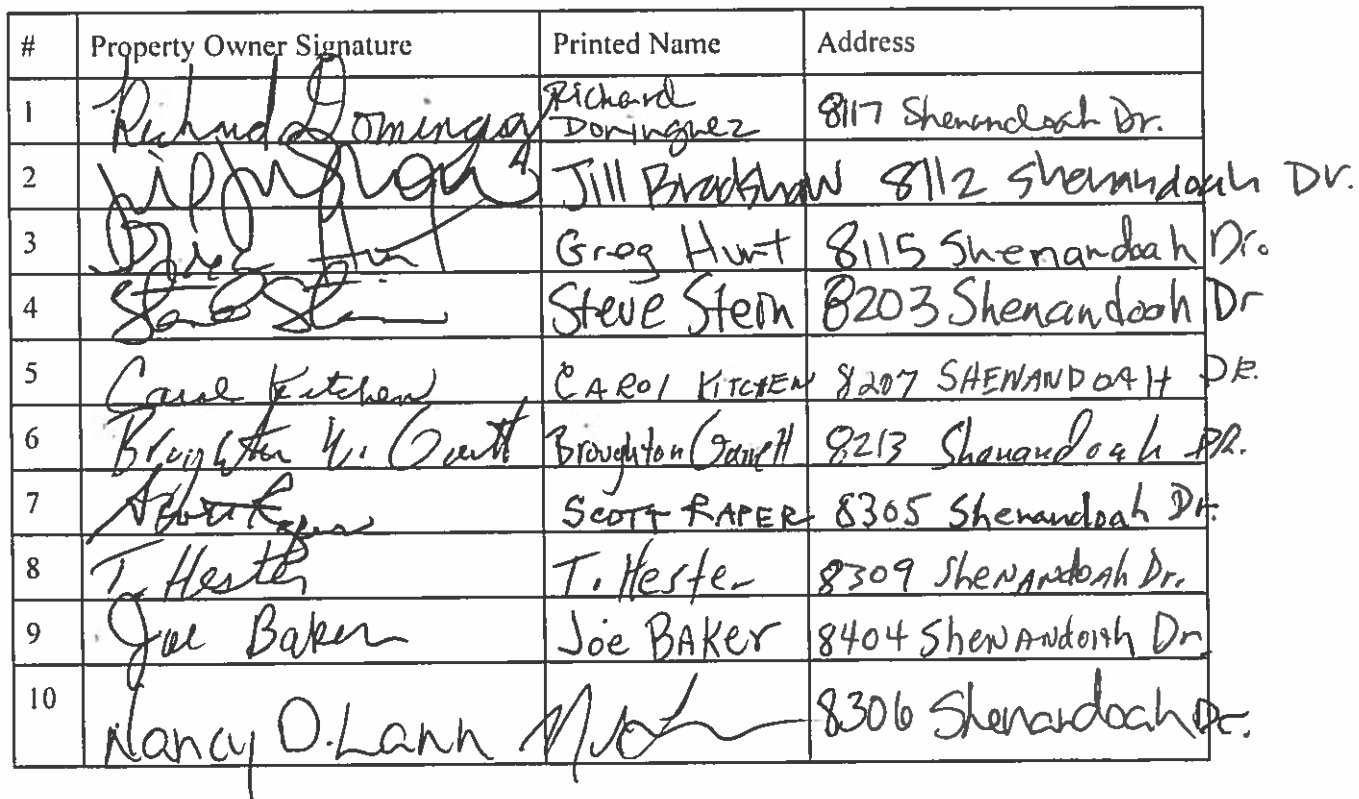 # Property Owner Signature Printed Name Address
1 Richard Dominguez Richard
Dominguez 8117 Shenandoah Dr.
2 Jill Bradshaw 8112 Shenandoah Dr.
3 Greg Hunt 8115 Shenandoah Dr.
4 Steve Stern Steve Stern 8203 Shenandoah Dr
5 Carol Kitchen CAROl KITCHEN 8207 SHENANDOAH DR.
6 Broughton Broughton Garrett 8213 Shanandoah DR.
7 SCOTT RAPER 8305 Shenandoah Dr.
8 T. Hester T. Hester 8309 SheNANdoAh Dr.
9 Joe Baker Joe BAKER 8404 SheNANdoAh Dr
10 Nancy D. Lann 8306 Shenandoah Dr.